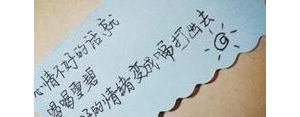 心情不好的话就
喝喝雪碧
好的情绪变成嗝打出去